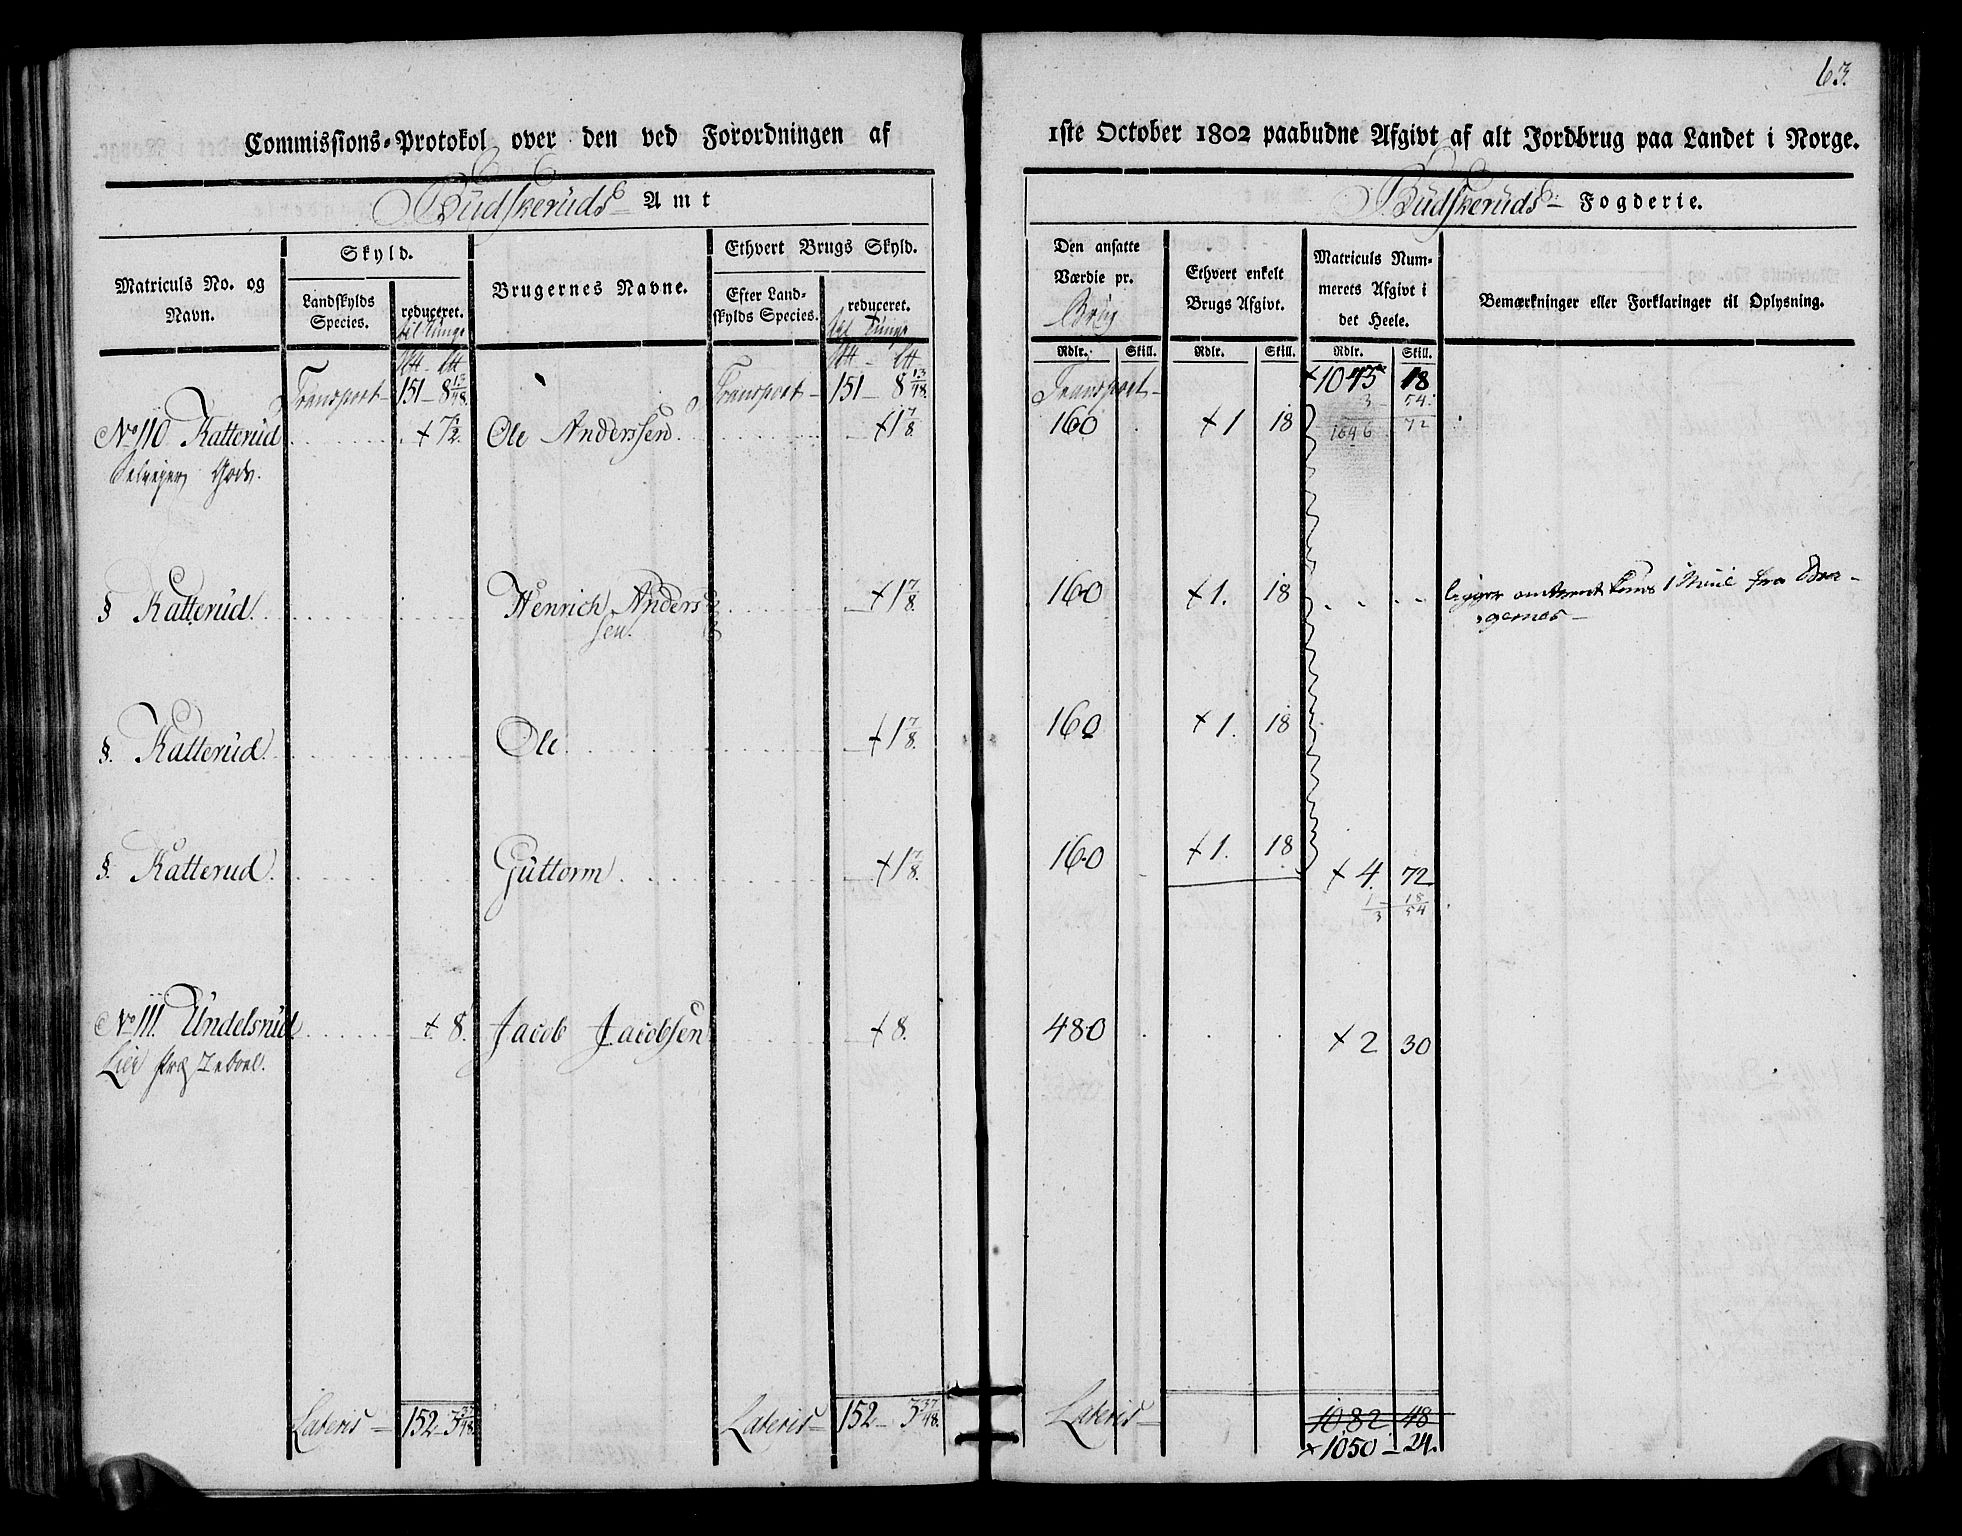 63.
Commissions-Protokol over den ved Forordningen af 1ste October 1802 paabudne Afgivt af alt Jordbrug paa Landet i Norge.
Budskeruds Amt
Budskeruds Fogderie.
Matriculs No. og Navn.
Skyld.
Landskylds Species.
reduceret. til tunge
Brugernes Navne.
Ethvert Brugs Skyld.
Efter Landskylds Species.
reduceret. til tunge
Den ansatte Værdie pr. Brug
Ethvert enkelt Brugs Afgivt.
Matriculs Nummerets Afgivt i det Heele.
Bemærkninger eller Forklaringer til Oplysning.
Rdlr. Skill. Rdlr. Skill. Rdlr. Skill.
Transport 151 - 8 13/48. Transport 151 - 8 13/48. Transport + 1045 18
3 54
1046 72
No 110 Katterud + 7 1/2. Ole Anderssen + 1 7/8. 160 + 1 18
Selveyer Gods.
§ Katterud. Henrich Anderssen. + 1 7/8. 160 + 1. 18 ligger omtrent 1 Miil fra Bragernes
§. Katterud. Ole + 1 7/8. 160 + 1. 18
§. Katterud. Guttorm + 1 7/8. 160 + 1. 18 + 4. 72
1 - 18
3 54
No 111. Undelsrud + 8. Jacob Jacobsen + 8. 480 + 2 30
Lateris 152 - 3 37/48. Lateris 152 - 3 37/48. Lateris 1082 48
+ 1050 - 24.